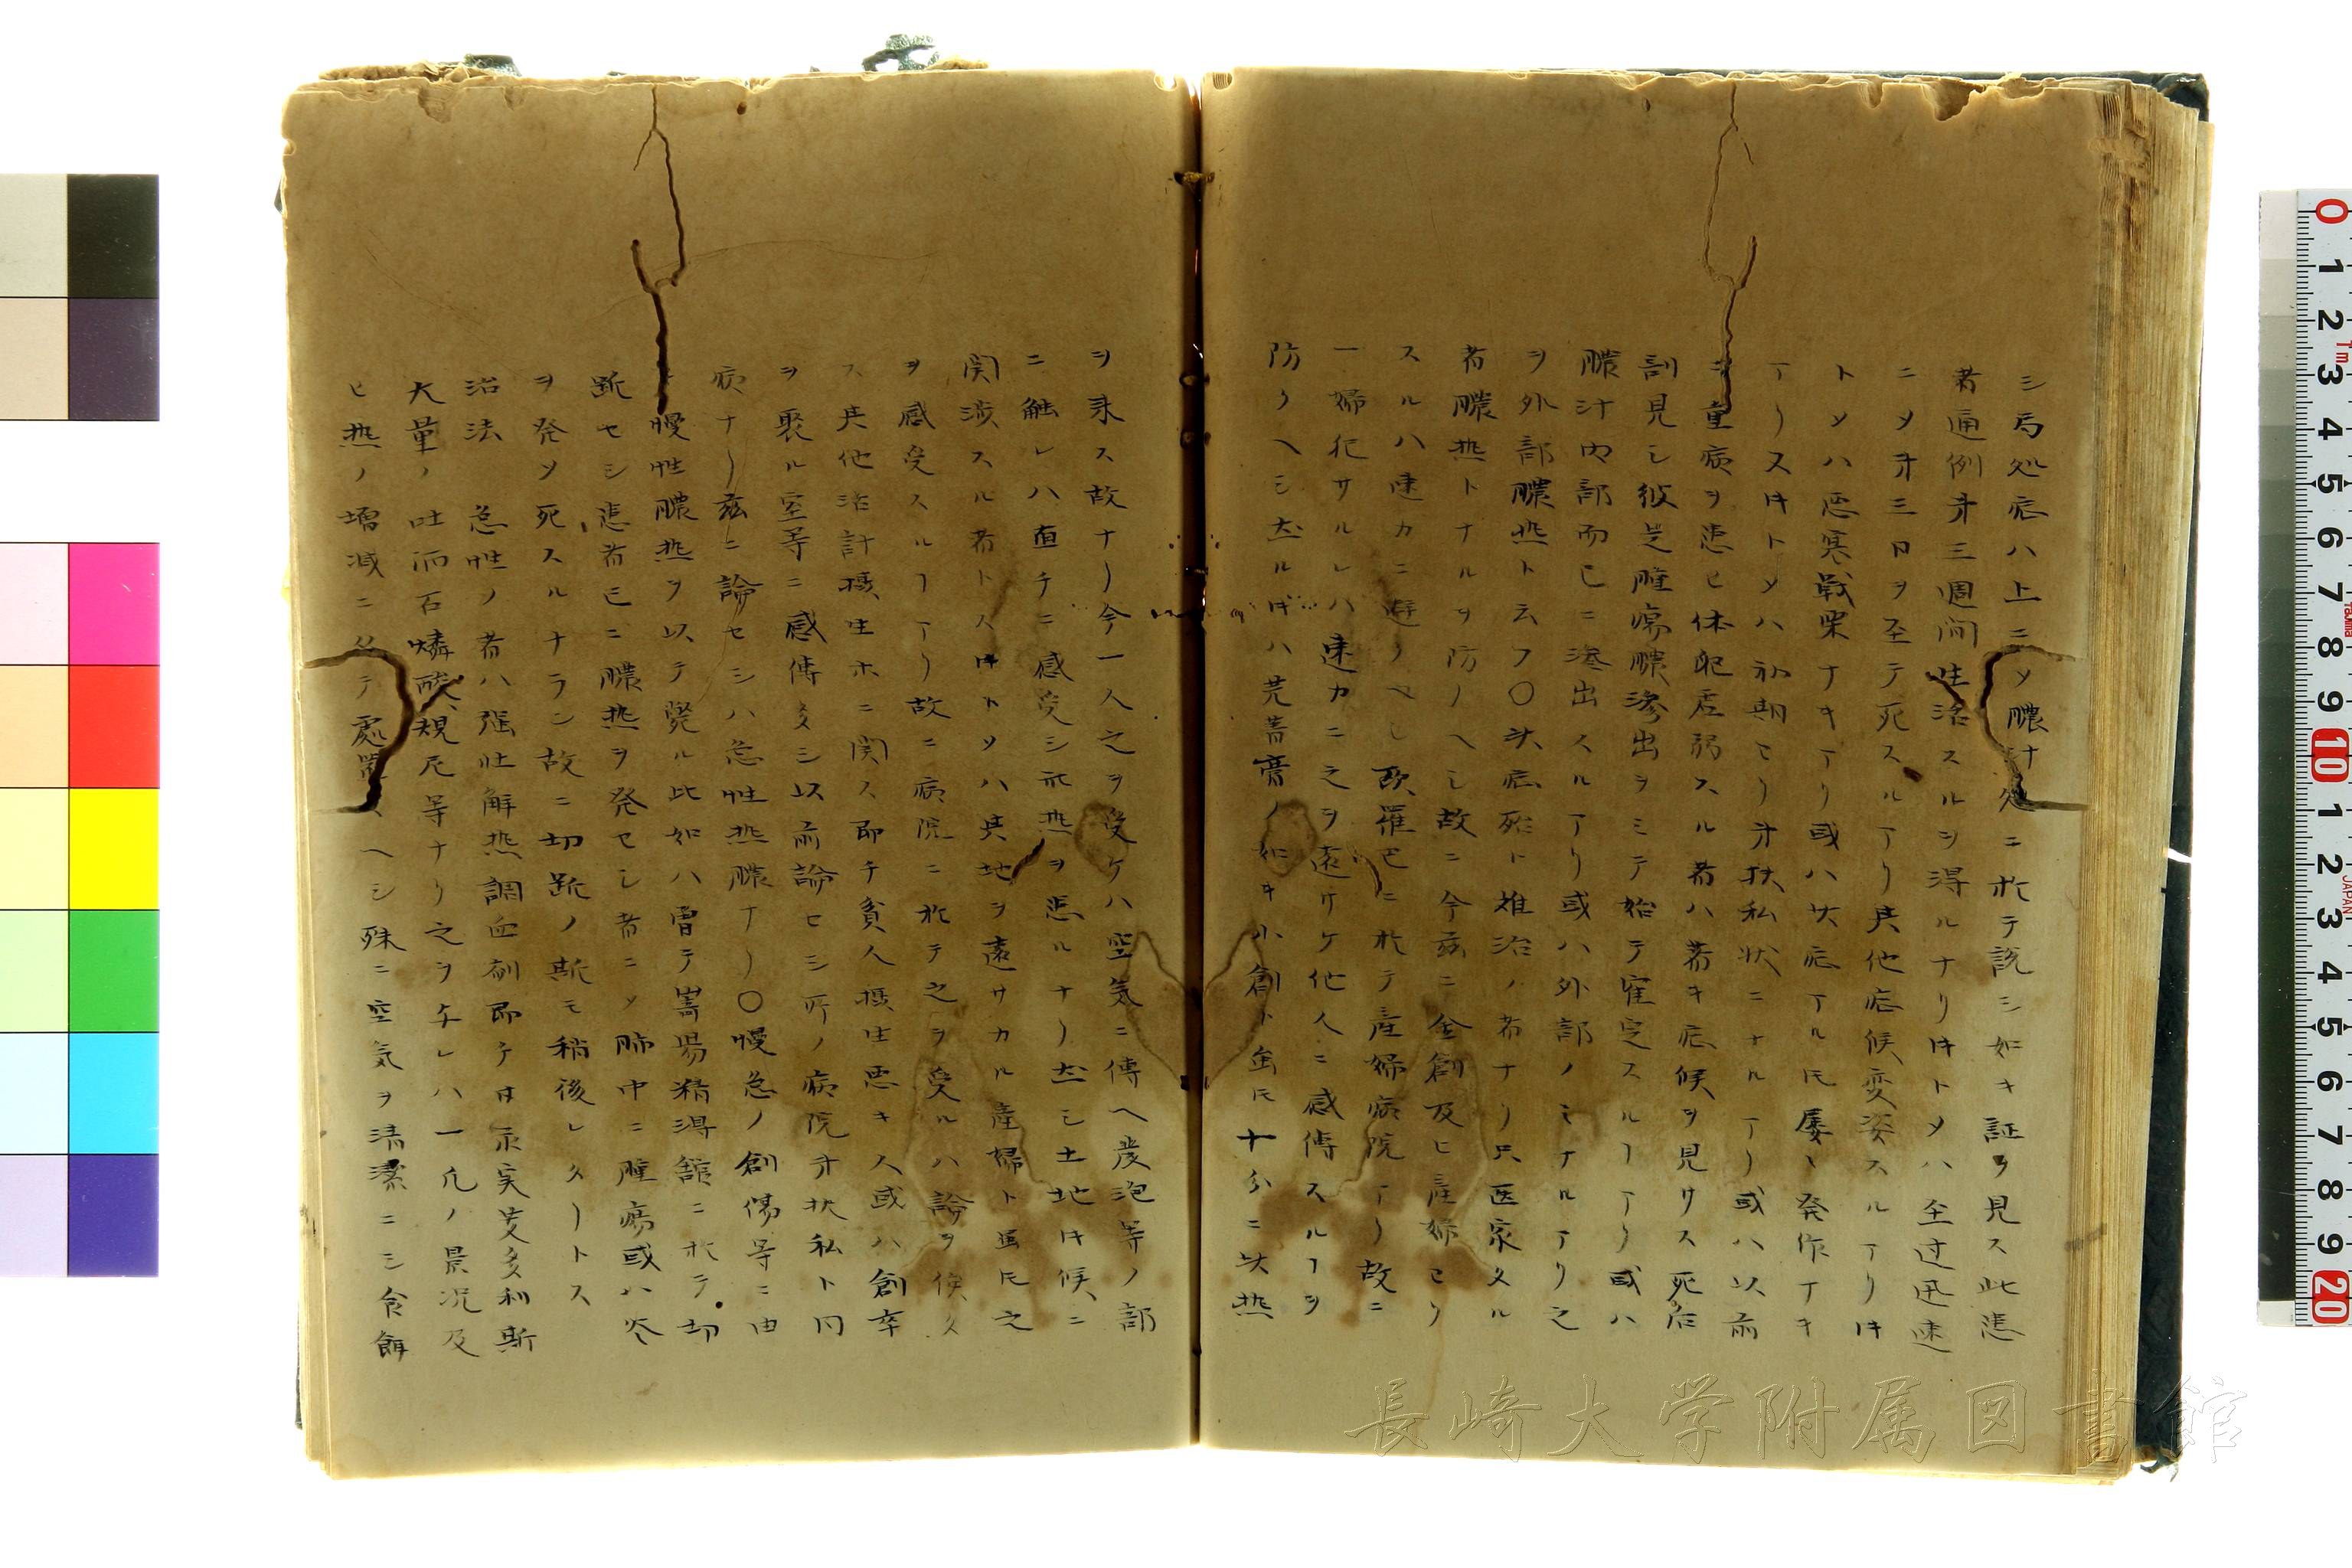 シ局処症ハ上ニメ膿汁処ニ於テ説シ如キ証ヲ見ス此患
者通例才三週间生活スルヲ得ルナリ时トメハ全过迅速
ニメ才三日ヲ至テ死スルアリ其他症候変姿スルアリ时
トメハ悪寒戦栗ナキアリ或ハ此症アル氏屡々発作アキ
アリス时トメハ初期ヨリ才扶私状ニナルアリ或ハ以前
重病ヲ患ヒ体躯虚弱スル者ハ著キ症候ヲ見サス死后
剖見シ彼是腫瘍膿滲出ヲミテ始テ確定スルヿアリ或ハ
膿汁内部而已ニ滲出スルアリ或ハ外部ノミナルアリ之
ヲ外部膿热ト云フ〇此症死ト难治ノ者ナリ只医家タル
者膿热トナルヲ防ノヘシ故ニ今茲ニ金創及ヒ産婦ヨリ
スルハ速カニ避クヘシ欧羅巴ニ於テ産婦病院アリ故ニ
一婦犯サルレハ速カニ之ヲ遠ケケ他人ニ感傳スルヿヲ
防クヘシ左ルトキハ芫菁膏ノ如キ小創ト虽氏十分ニ此热
ヲ来ス故ナリ今一人之ヲ受ケハ空気ニ傳ヘ発泡等ノ部
ニ触レハ直チニ感受シ此热ヲ患ルナリ左シ土地时候ニ
関渉スル者トス时トメハ其地ヲ遠サカル産婦ト虽氏之
ヲ感受スルヿアリ故ニ病院ニ於テ之ヲ受ルハ論ヲ俟タ
ス其他治計摂生ホニ関ス即チ貧人摂生悪キ人或ハ創卒
ヲ聚ル室等ニ感傳多シ以前論セシ所ノ病院才扶私ト同
病ナリ茲ニ論セシハ急性热膿ナリ〇慢急ノ創傷等ニ由
慢性膿热ヲ以テ斃ル此如ハ曽テ嵩陽精淂舘ニ於テ切
断セシ患者已ニ膿热ヲ発セシ者ニメ肺中ニ腫瘍或ハ炎
ヲ発メ死スルナラン故ニ切断ノ期モ稍後レタリトス
治法 急性ノ者ハ強壮解热調血剤即チ日尓実芰多利斯
大量ノ吐酒石燐酸規尼等ナリ之ヲ与レハ一凡ノ景况及
ヒ热ノ増减ニ从テ處置スヘシ殊ニ空気ヲ清潔ニシ食餌
長崎大学附属図書館